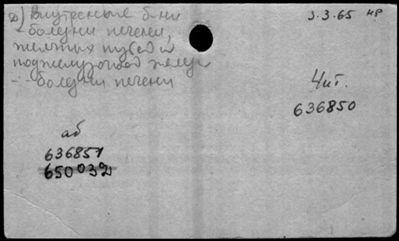 в) Внутренные б-ни
- болезни печени,
желчных путей и
поджелудочной желез
- : - болезни печени
3.3.65 нр
Чит.
636850
аб
636851
650032